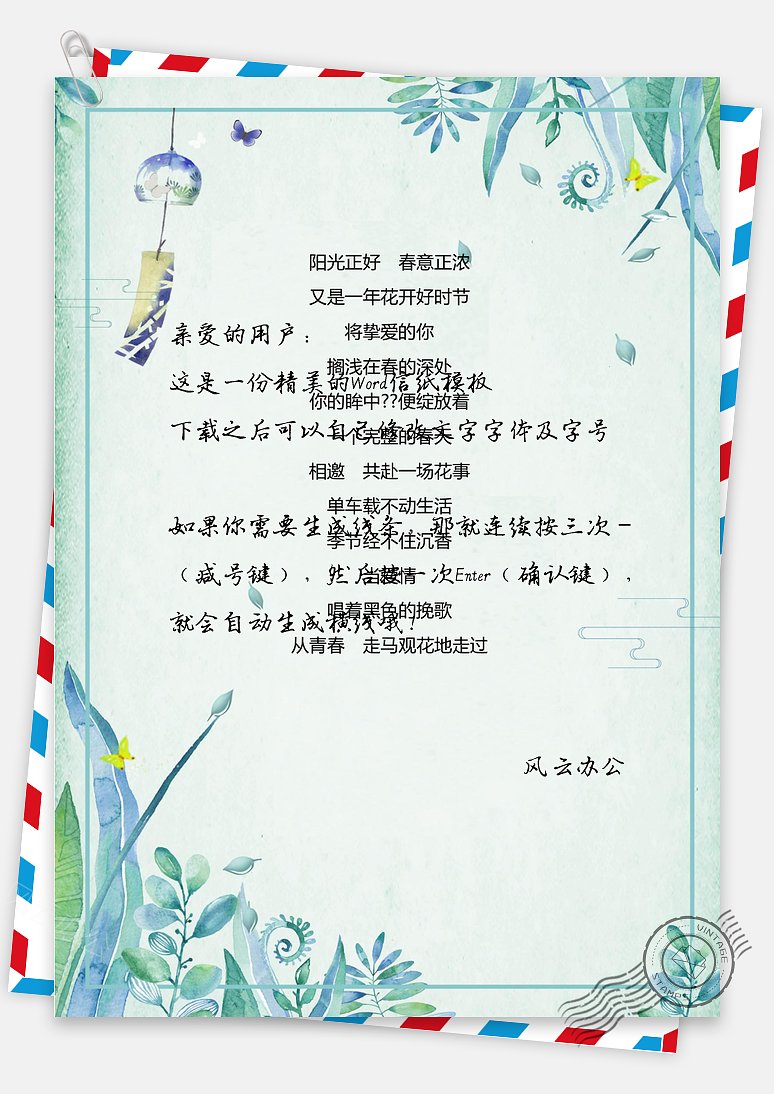 阳光正好　春意正浓
又是一年花开好时节
将挚爱的你
亲爱的用户：
搁浅在春的深处
这是一份精美的Word信纸模板
你的眸中??便绽放着
下载之后可以自己修改文字字体及字号
个完整的春天
相邀　共赴一场花事
单车载不动生活
如果你需要生成线条，那就连续按三次－
季节经不住沉香
（减号键），然后按一次Enter（确认键），
唱着黑色的挽歌
就会自动生成横线哦！
从青春　走马观花地走过
风云办公
VINTAGE
STAMPS